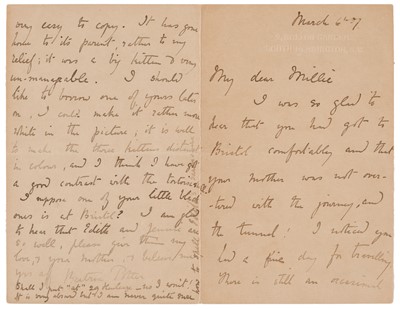 March 6th 97
My dear Millie
I was so glad to
hear that you had got to
Bristol comfortably and that
your mother was not over-
tired with the journey, and
the tunnel! I noticed you
had a fine day for travelling
there is still an occasional
very easy to copy. It has gone
home to its parent, rather to my
relief; it was a big kitten & very
un-manageable. I should
like to borrow one of yours later
on, I could make it rather more
white in the picture; it is well
to make the three kittens distinct
in colour, and I think I have got
a good contrast with the tortoise
I suppose one of your little black
ones is at Bristol? I am glad
to hear that Edith and Jennie are
so well, please give them my
love, & your mother, & believe me
yrs aff Beatrix Potter
Shall I put "at" 20 - no I won't!
It is very absurd but I am never quite sure